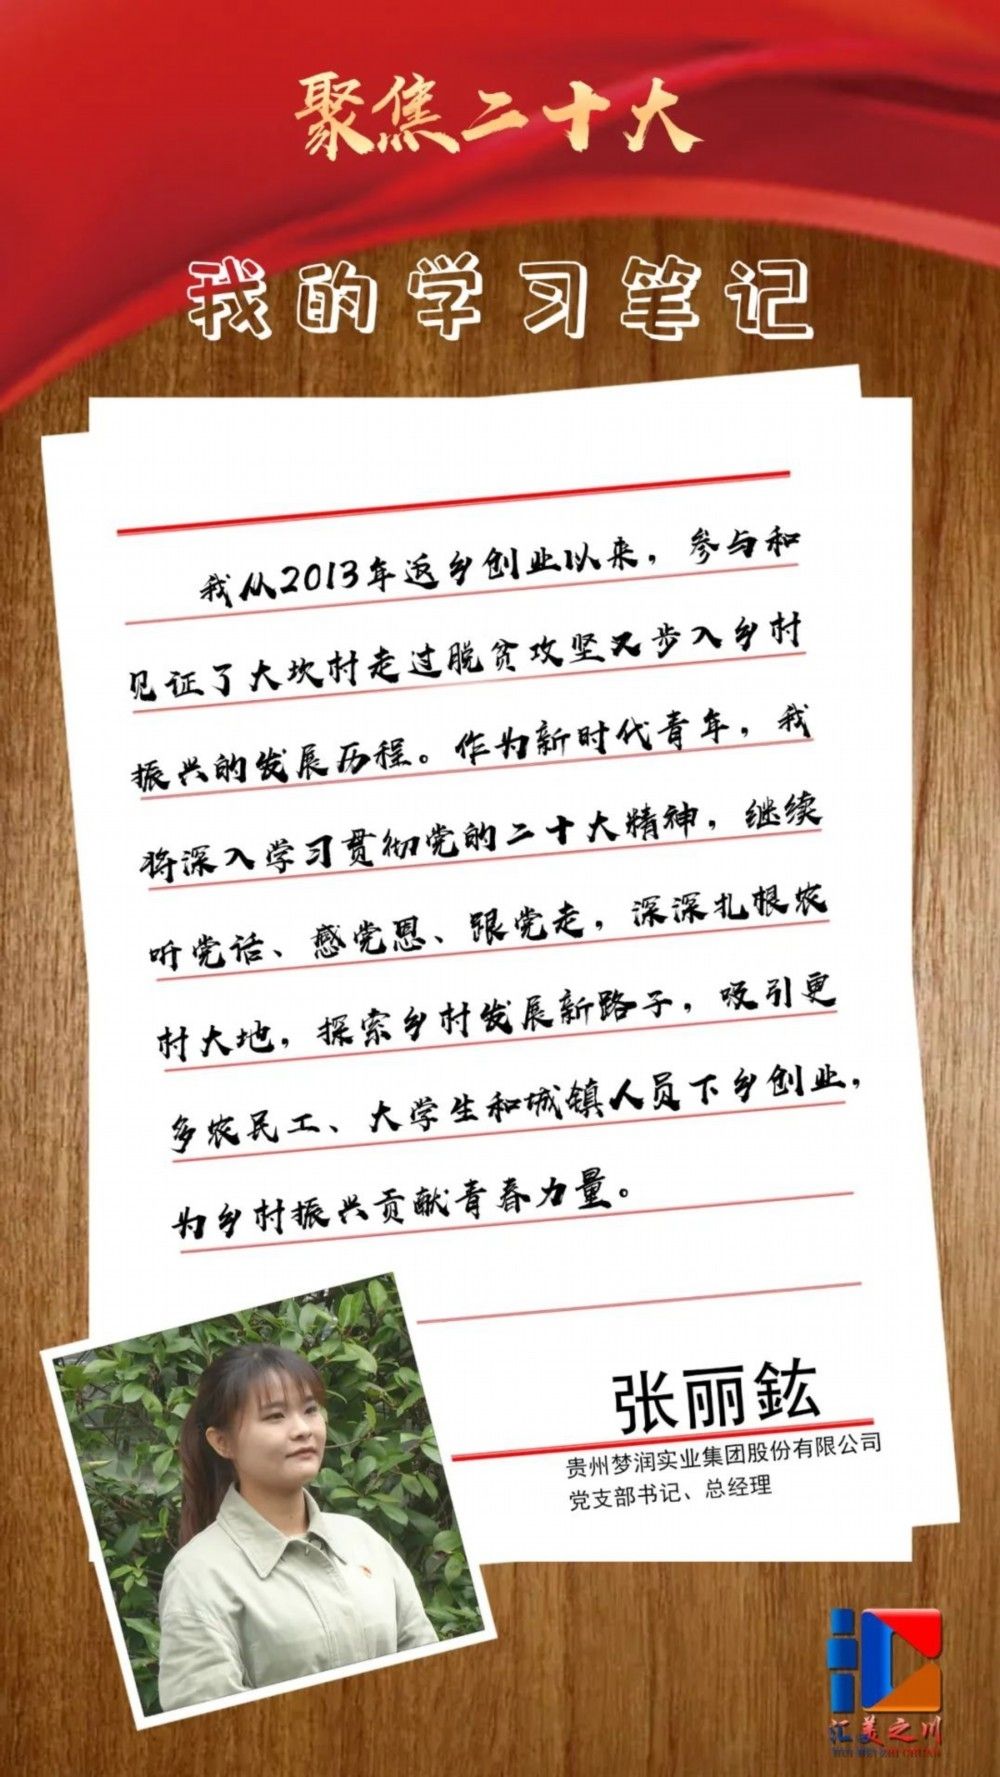 聚焦二十大
我的学习笔记
我从2013年返乡创业以来，参与和
见证了大坎村走过脱贫攻坚又步入乡村
振兴的发展历程。作为新时代青年，我
将深入学习贯彻党的二十大精神，继续
听党话、感党恩、跟党走，深深扎根农
村大地，探索乡村发展新路子，吸引更
多农民工、大学生和城镇人员下乡创业，
为乡村振兴贡献青春力量。
张丽鋐
贵州梦润实业集团股份有限公司
党支部书记、总经理
汇美之川
HUI MEI ZHI CHUAN